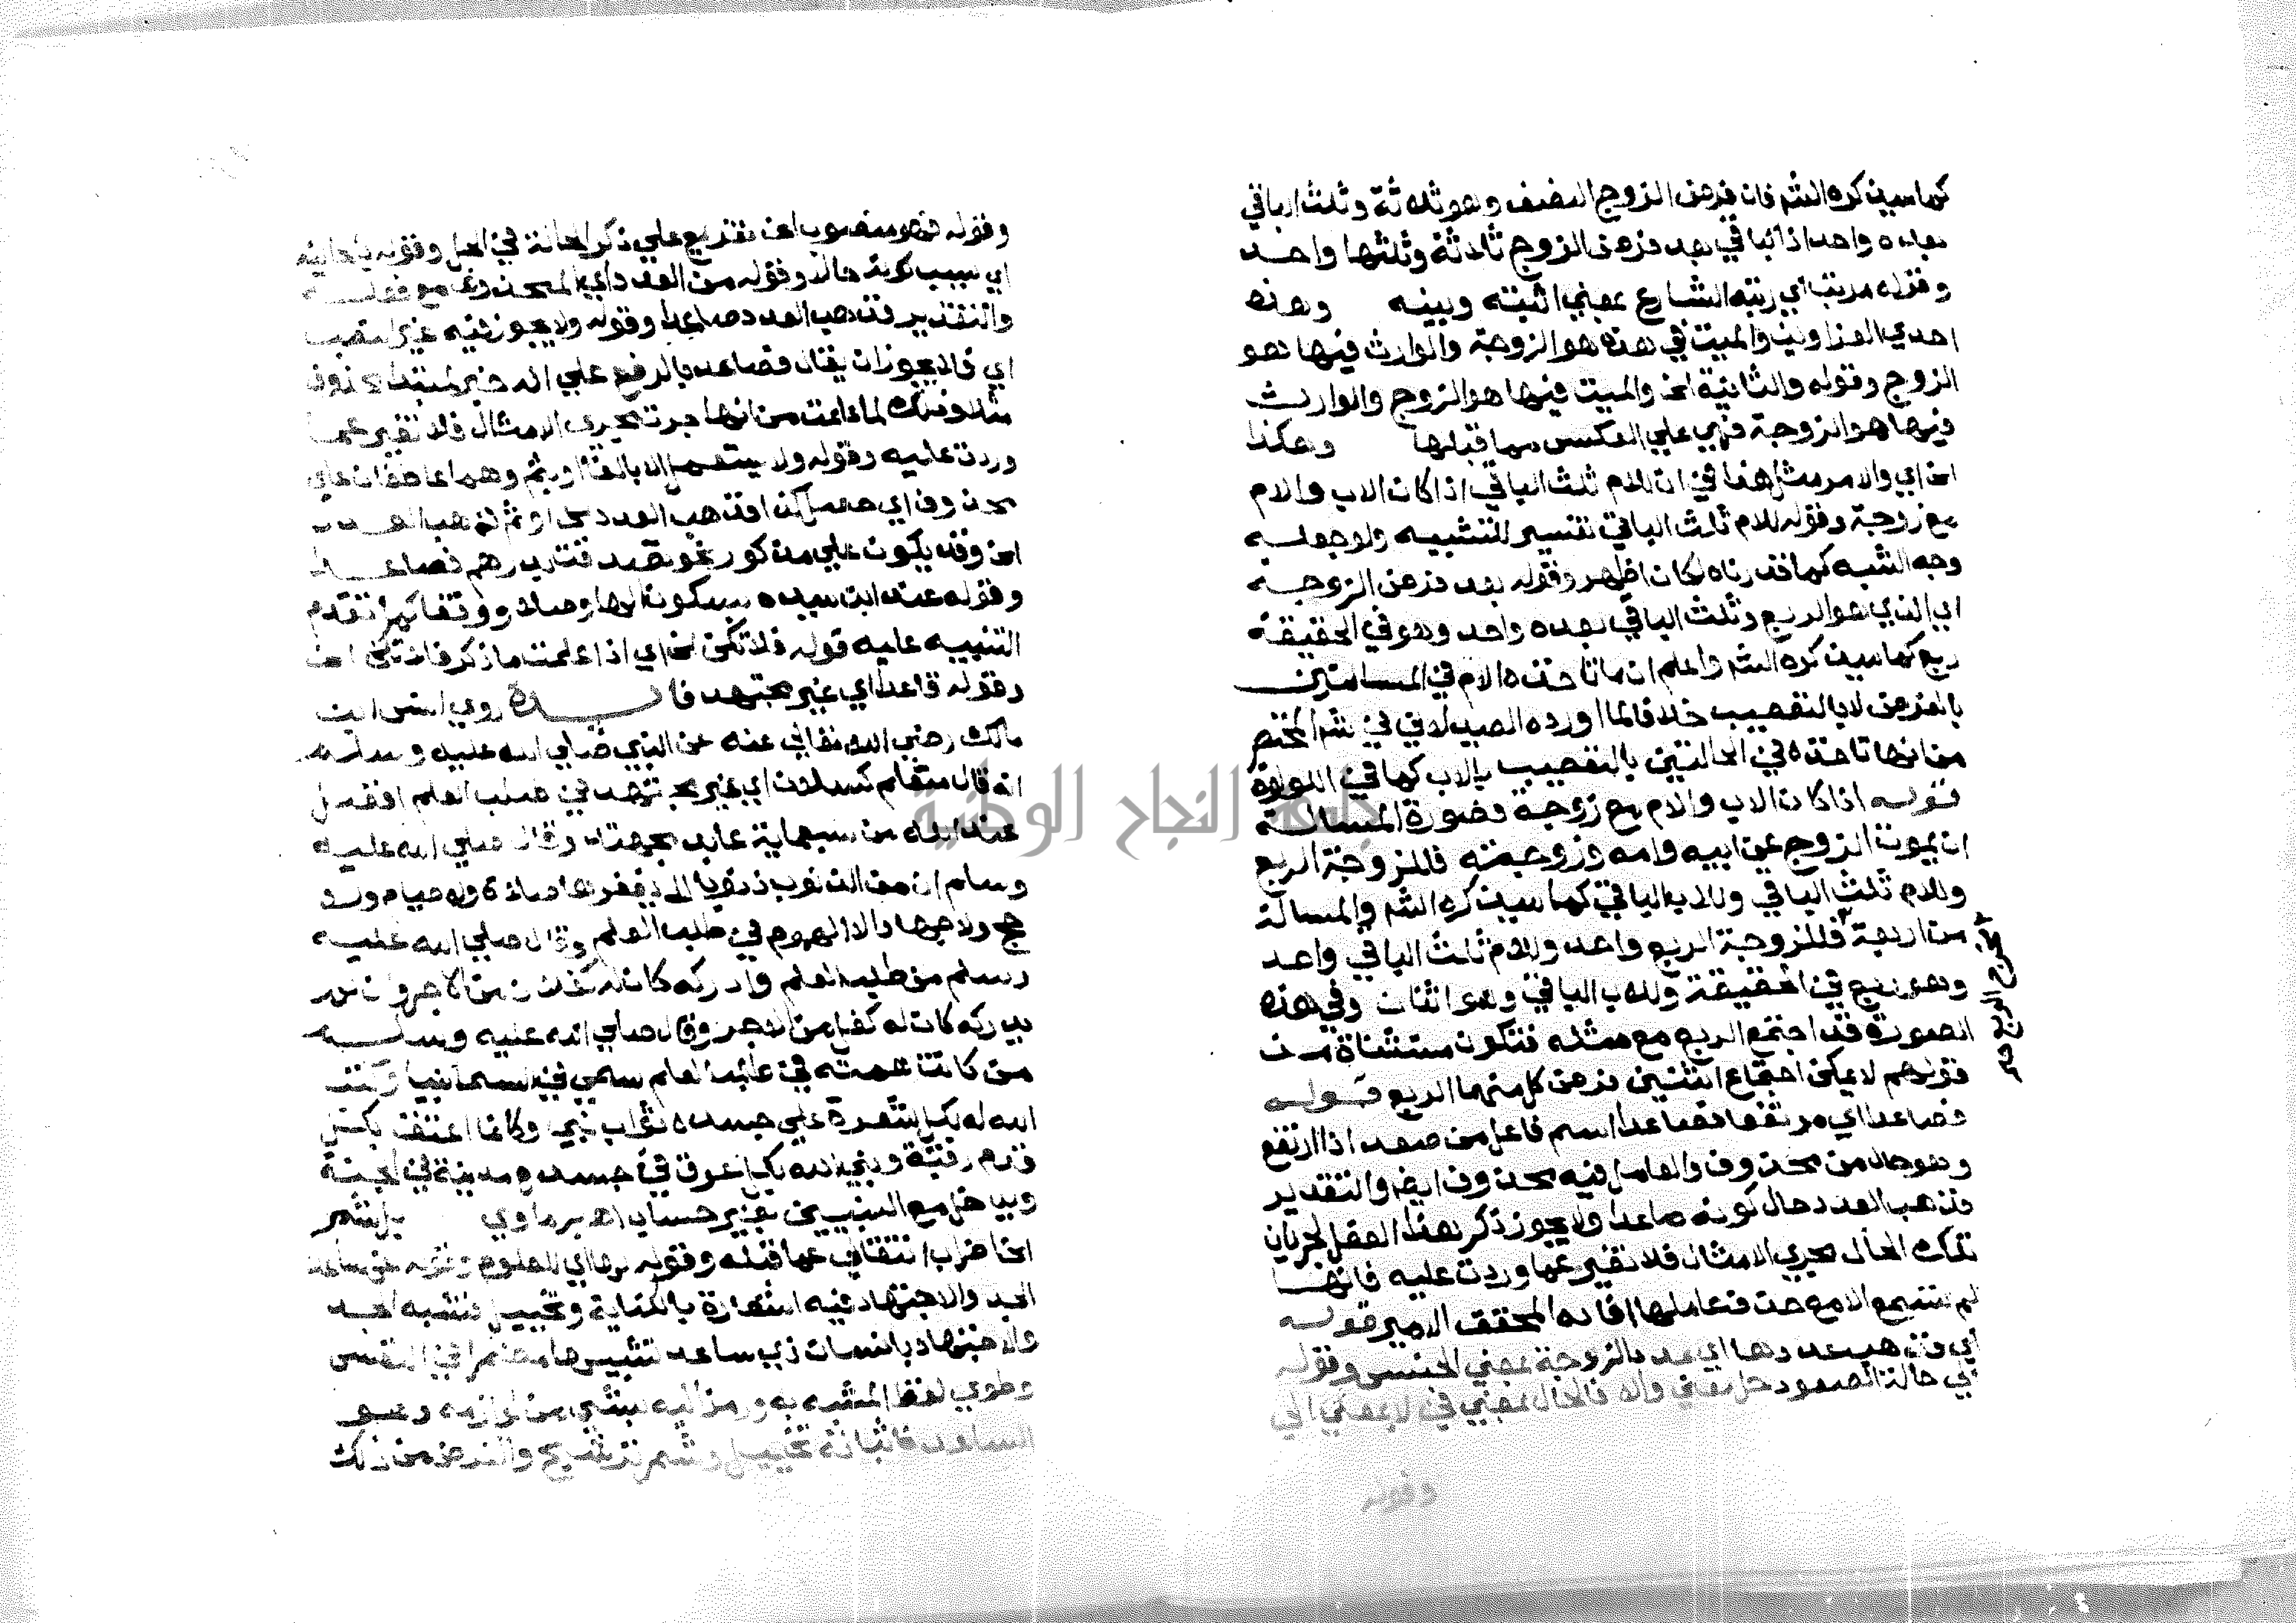 كما سيذكره الشم فان فرض الزوج النصف وهو ثلاثة وثلث الباقي
بعده واحد اذ الباقي بعد فرض الزوج ثلاثة وثلثها واحد
وقوله مرتب اي رتبه الشارع بمعني اثبته وبينه وهذه
احدي الغراوين والميت في هذه هو الزوجة والوارث فيها هو
الزوج وقوله والثانية الخ والميت فيها هو الزوج والوارث
فيها هو الزوجة فهي علي العكس مما قبلها وهكذا
الخ اي والامر مثل هذا في ان للام ثلث الباقي اذا كان الاب والام
مع زوجة وقوله للام ثلث الباقي تفسير للتشبيه ولو جعله
وجه الشبه كما قدرناه لكان اظهر وقوله بعد فرض الزوجة
اي الذي هو الربع وثلث الباقي بعده واحد وهو في الحقيقة
ربع كما سيذكره الشم واعلم ان ما تاخذه الام في المسالتين
بالفرض لا بالتعصيب خلافا لما اورده الصيدلاني في شرح المختصر
من انها تاخذه في الحالتين بالتعصيب بالاب كما في اللولوة
قوله اذا كان الاب والام مع زوجة فصورة المسالة
ان يموت الزوج عن ابيه وامه وزوجته فللزوجة الربع
وللام ثلث الباقي وللاب الباقي كما سيذكره الشم والمسالة
من اربعة فللزوجة الربع واحد وللام ثلث الباقي واحد
وهو ربع في الحقيقة وللاب الباقي وهو اثنان وفي هذه
الصورة قد اجتمع الربع مع مثله فتكون مستثناة من
قولهم لا يمكن اجتماع اثنين فرض كل منهما الربع قوله
فصاعدا اي مرتفعا فصاعدا اسم فاعل من صعد اذا ارتفع
وهو حال من محذوف والعامل فيه محذوف ايضا والتقدير
فذهب العدد حال كونه صاعدا ولا يجوز ذكر هذا العقل لجريان
تلك الحال مجري الامثال فلا تغير عما وردت عليه فانها
لم تسمع الا مع حذف عاملها افاده المحقق الامير قوله
اي فذهب عددها اي عدد الزوجة بمعني الجنس وقوله
في حالة الصعود حل معني والا فالحال بمعني في لا بمعني الي
وقوله
وقوله فهو منصوب الخ تفريع علي ذكر الحالة في الحل وقوله بالحالية
اي بسبب كونه حالا وقوله من العدد اي المحذوف مع فعله
والتقدير فذهب العدد صاعدا وقوله ولا يجوز فيه غير النصب
اي فلا يجوز ان يقال فصاعد بالرفع علي انه خبر لمبتدا محذوف
مثلا وذلك لما علمت من انها جرت مجري الامثال فلا تغير عما
وردت عليه وقوله ولا يستعمل الا بالفا او بثم وهما عاطفان علي
محذوف
وقوله عند ابن سيده بسكون الها وصلا ووقفا كما تقدم
التنبيه عليه قوله فلا تكن الخ اي اذا علمت ما ذكر فلا تكن الخ
وقوله قاعدا اي غير مجتهد فائدة روي انس ابن
مالك رضي الله تعالي عنه عن النبي صلي الله عليه وسلم
انه قال متعلم كسلان اي غير مجتهد في طلب العلم افضل
عند الله من سبعماية عابد مجتهد وقال صلي الله عليه
وسلم ان من الذنوب ذنوبا لا يغفرها صلاة ولا صيام ولا
حج ولا جهاد الا الهموم في طلب العلم وقال صلي الله عليه
وسلم من طلب العلم وادركه كان له كفلان من الاجر وان لم
يدركه كان له كفل من الاجر وقال صلي الله عليه وسلم
من كانت همته في طلب العلم سمي في السما نبيا وكتب
الله له بكل شعرة علي جسده ثواب نبي وكانما اعتق بكل
قدم رقبة وبني الله بكل عرق في جسده مدينة في الجنة
ويدخل مع النبيين بغير حساب اهـ برماوي بل شمر
الخ اضراب انتقالي عما قبله وقوله لها اي للعلوم وقوله عن ساعد
الجد والاجتهاد فيه استعارة بالكناية وتخييل فشبه الجد
والاجتهاد بانسان ذي ساعد تشبيها مضمرا في النفس
وطوي لفظ المشبه به ورمز اليه بشي من لوازمه وهو
الساعد فاثباته تخييل وشمر ترشيح والغرض من ذلك